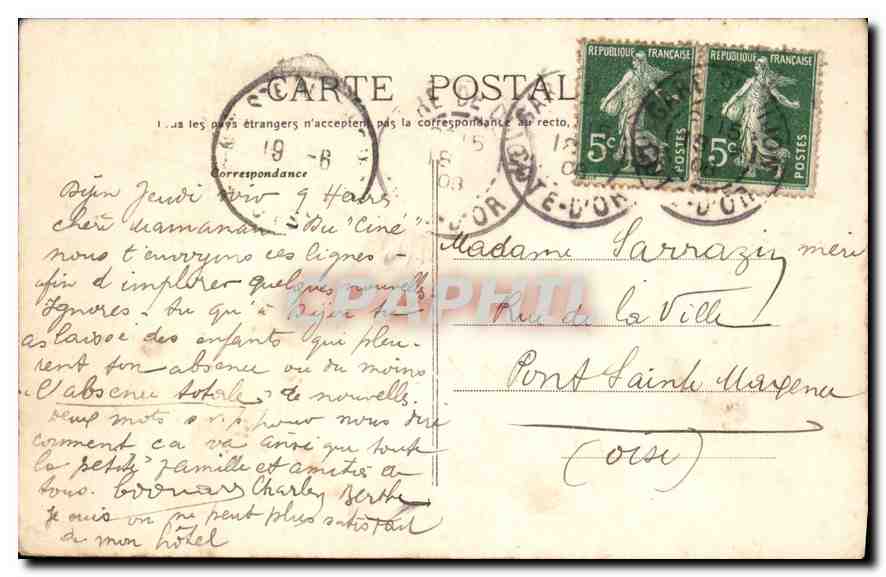 CARTE POSTALE
Tous les pays étrangers n'acceptent pas la correspondance au recto,
Correspondance
REPUBLIQUE FRANÇAISE
5c POSTES
REPUBLIQUE FRANÇAISE
5c POSTES
19 -6
GARE DE DIJON
CÔTE-D'OR
Dijon Jeudi soir 9 Heures
chère maman Du "Ciné"
nous t'envoyons ces lignes -
afin d'implorer quelques nouvelles
Ignores-tu qu'à Dijon tu
as laissé des enfants qui pleu-
rent ton absence ou du moins
"l'absence totale" de nouvelles.
Deux mots s.v.p. pour nous dire
comment ca va ainsi que toute
la "petite" famille et amitiés à
tous. Edouard Charley Berthe
Je suis on ne peut plus satisfait
de mon hôtel
Madame Sarrazin mère
Rue de la Ville
Pont Sainte Maxence
(Oise)
CPAPHIL